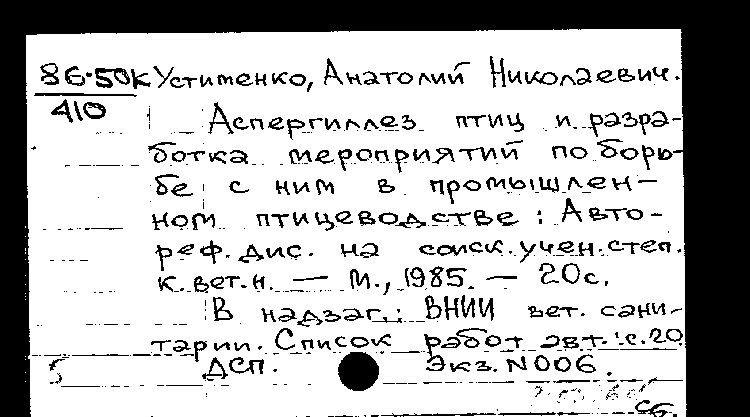 86-50к Устименко, Анатолий Николаевич.
410
Аспергиллез птиц и разра-
ботка мероприятий по борь-
бе с ним в промышлен-
ном птицеводстве : Авто-
реф. дис. на соиск. учен. степ.
к. вет. н. — М., 1985. — 20 с.
В надзаг.: ВНИИ вет. сани-
тарии. Список работ авт.: с. 20
ДСП. Экз. N 006.
сб.